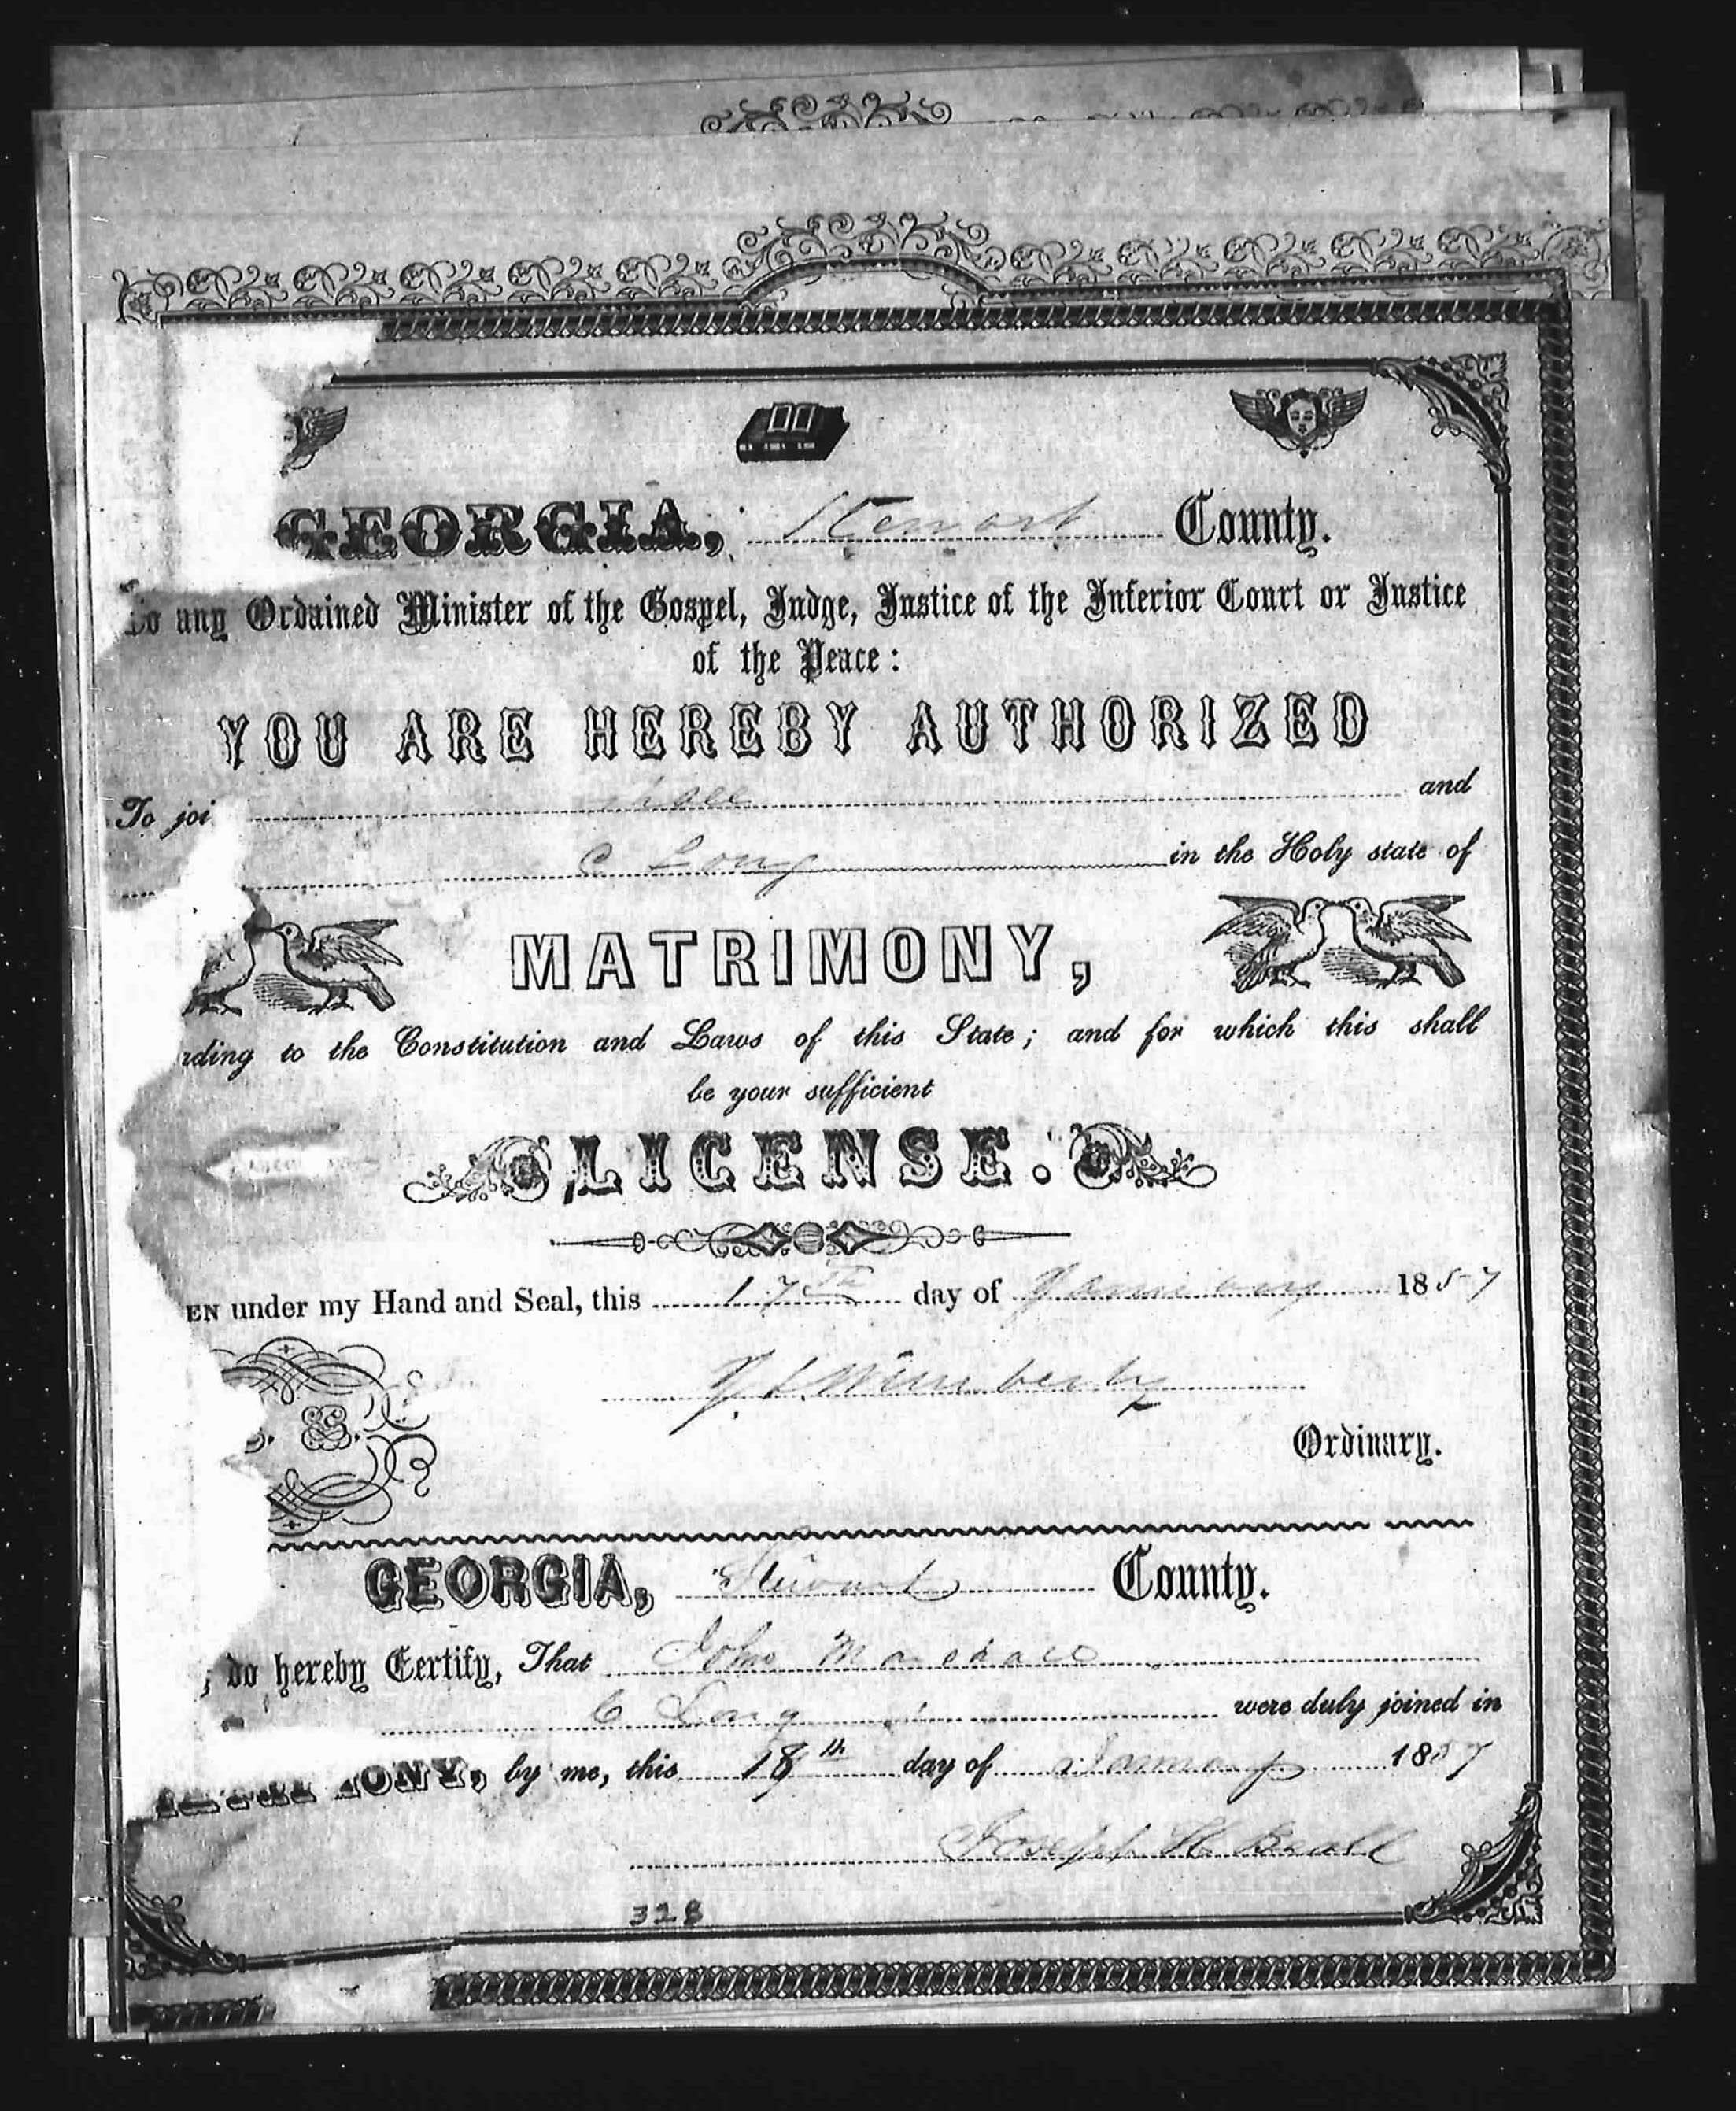 GEORGIA, Stewart County.
To any Ordained Minister of the Gospel, Judge, Justice of the Inferior Court or Justice
of the Peace:
YOU ARE HEREBY AUTHORIZED
To joi and
C Long in the Holy state of
MATRIMONY,
rding to the Constitution and Laws of this State; and for which this shall
be your sufficient
LICENSE.
EN under my Hand and Seal, this 17th day of January 1857
J L Wimberly
Ordinary.
S.
GEORGIA, Stewart County.
do hereby Certify, That John
C Long were duly joined in
MONY, by me, this 18th day of January 1857
Joseph H Beall
328